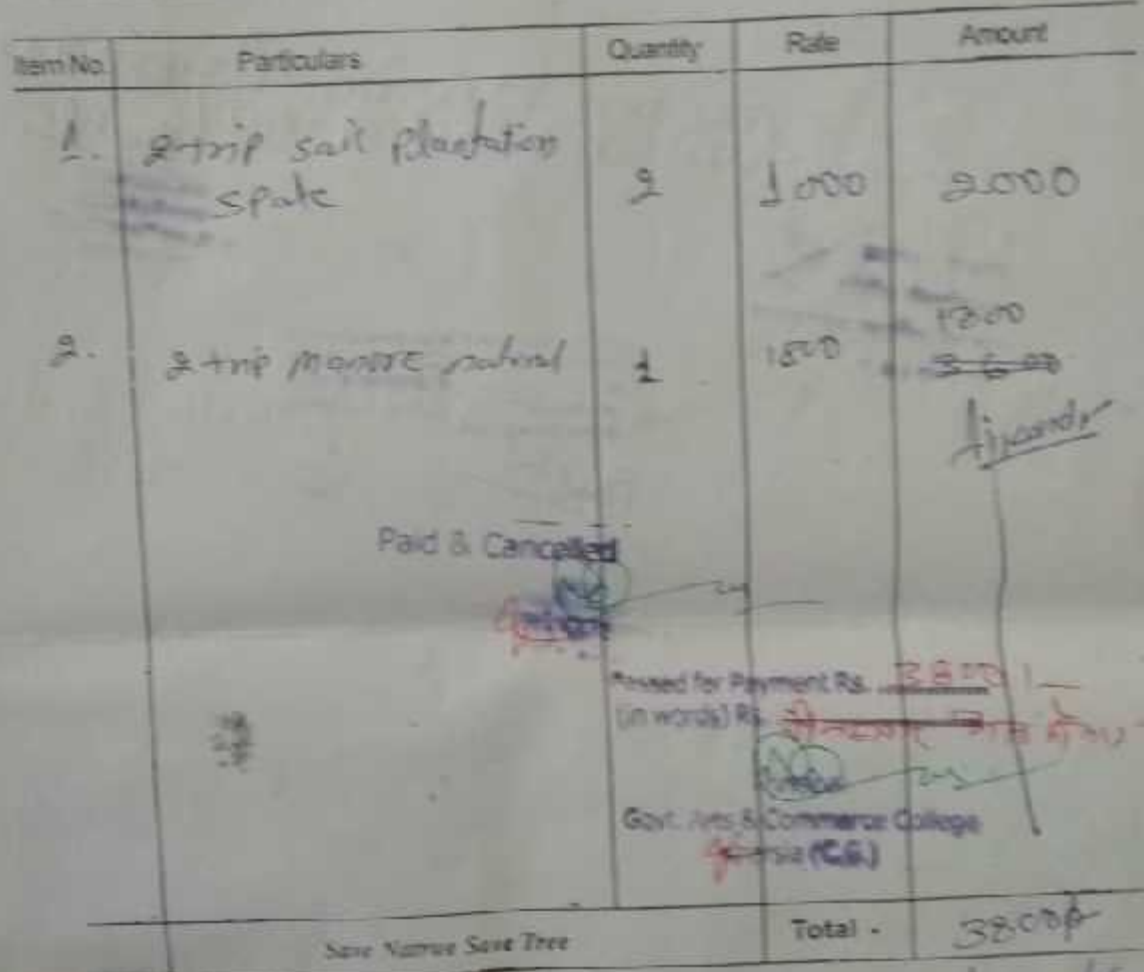 Item No. Particulars Quantity Rate Amount
1. 2 trip sail Plantation 2 1000 2000
spate
2. 2 trip manore natural 1 1800 1800
3600
Paid & Cancelled
Passed for Payment Rs. 3800/-
(in words) Rs.
Govt. Arts & Commerce College
(C.G.)
Save Natrue Save Tree Total - 3800/-